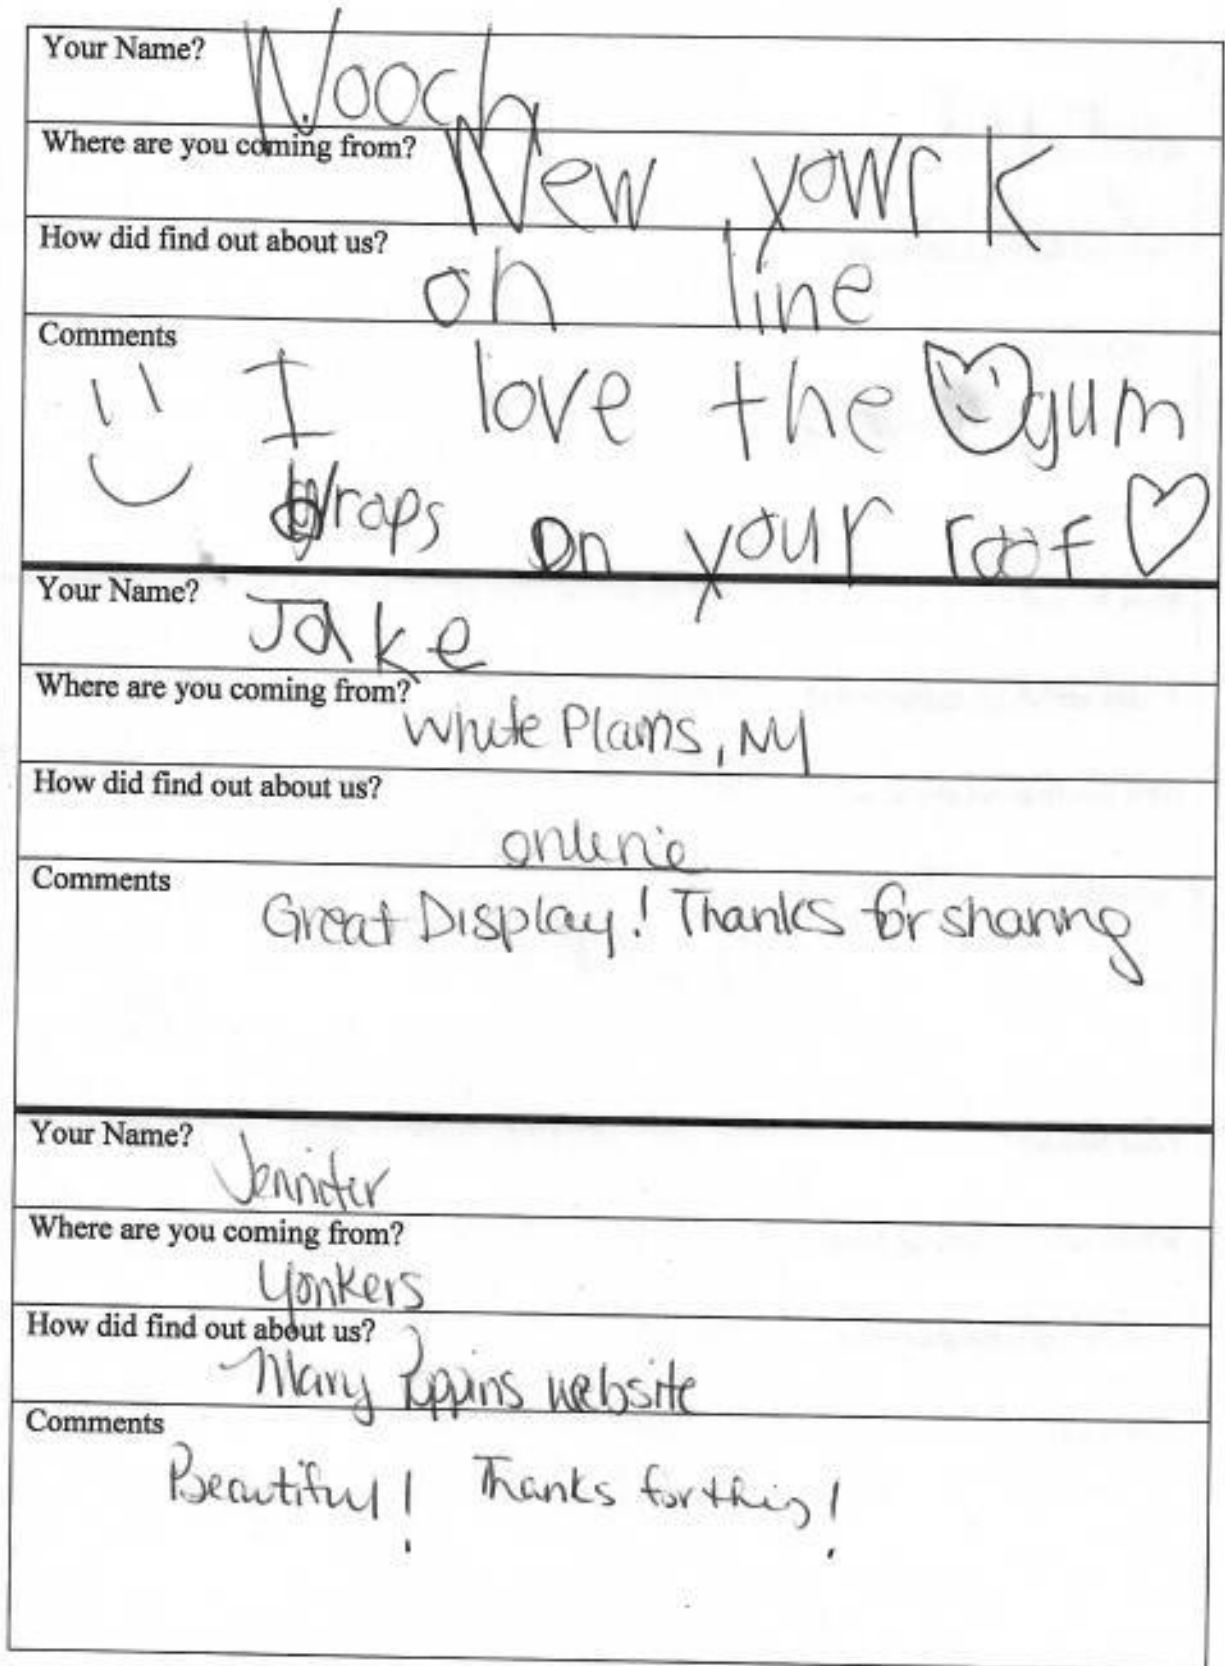 Your Name? Nooch
Where are you coming from? New yowrk
How did find out about us?
on line
Comments
I love the gum
drops on your roof
Your Name? Jake
Where are you coming from?
White Plains, NY
How did find out about us?
online
Comments
Great Display! Thanks for sharing
Your Name?
Jennifer
Where are you coming from?
Yonkers
How did find out about us?
Mary Poppins website
Comments
Beautiful! Thanks for this!